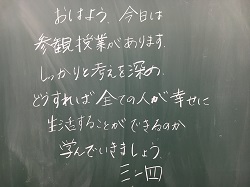 おはよう。今日は
参観授業があります。
しっかりと考えを深め、
どうすれば全ての人が幸せに
生活することができるのか
学んでいきましょう。
三ー四